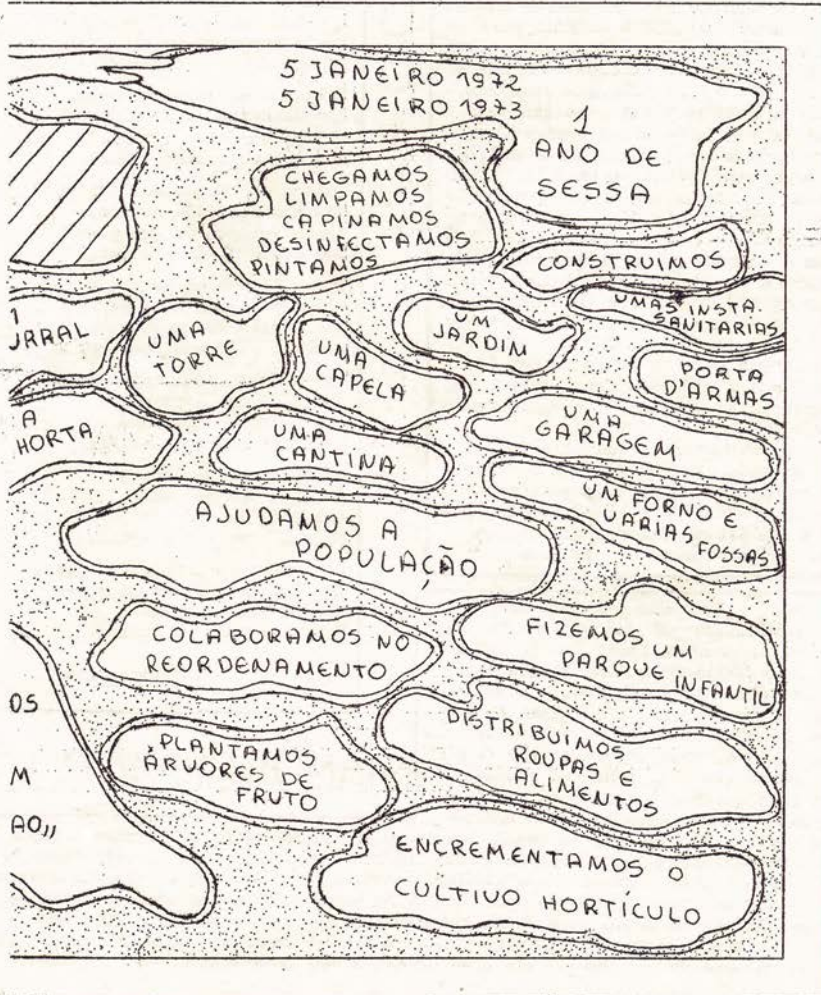 5 JANEIRO 1972
5 JANEIRO 1973
1
ANO DE
SESSA
CHEGAMOS
LIMPAMOS
CAPINAMOS
DESINFECTAMOS
PINTAMOS
CONSTRUIMOS
UMAS INSTA.
SANITARIAS
URRAL
UMA
TORRE
UMA
CAPELA
UM
JARDIM
PORTA
D'ARMAS
A
HORTA
UMA
CANTINA
UMA
GARAGEM
UM FORNO E
VARIAS FOSSAS
AJUDAMOS A
POPULAÇÃO
COLABORAMOS NO
REORDENAMENTO
FIZEMOS UM
PARQUE INFANTIL
OS
M
AO,,
PLANTAMOS
ÁRVORES DE
FRUTO
DISTRIBUIMOS
ROUPAS E
ALIMENTOS
ENCREMENTAMOS O
CULTIVO HORTÍCULO